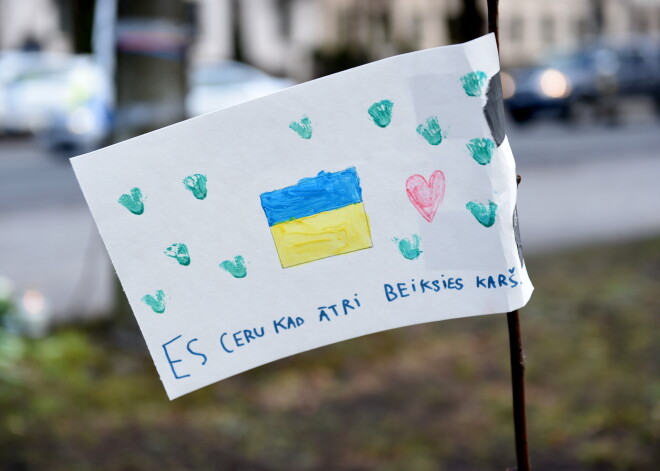 ES CERU KAD ĀTRI BEIKSIES KARŠ.